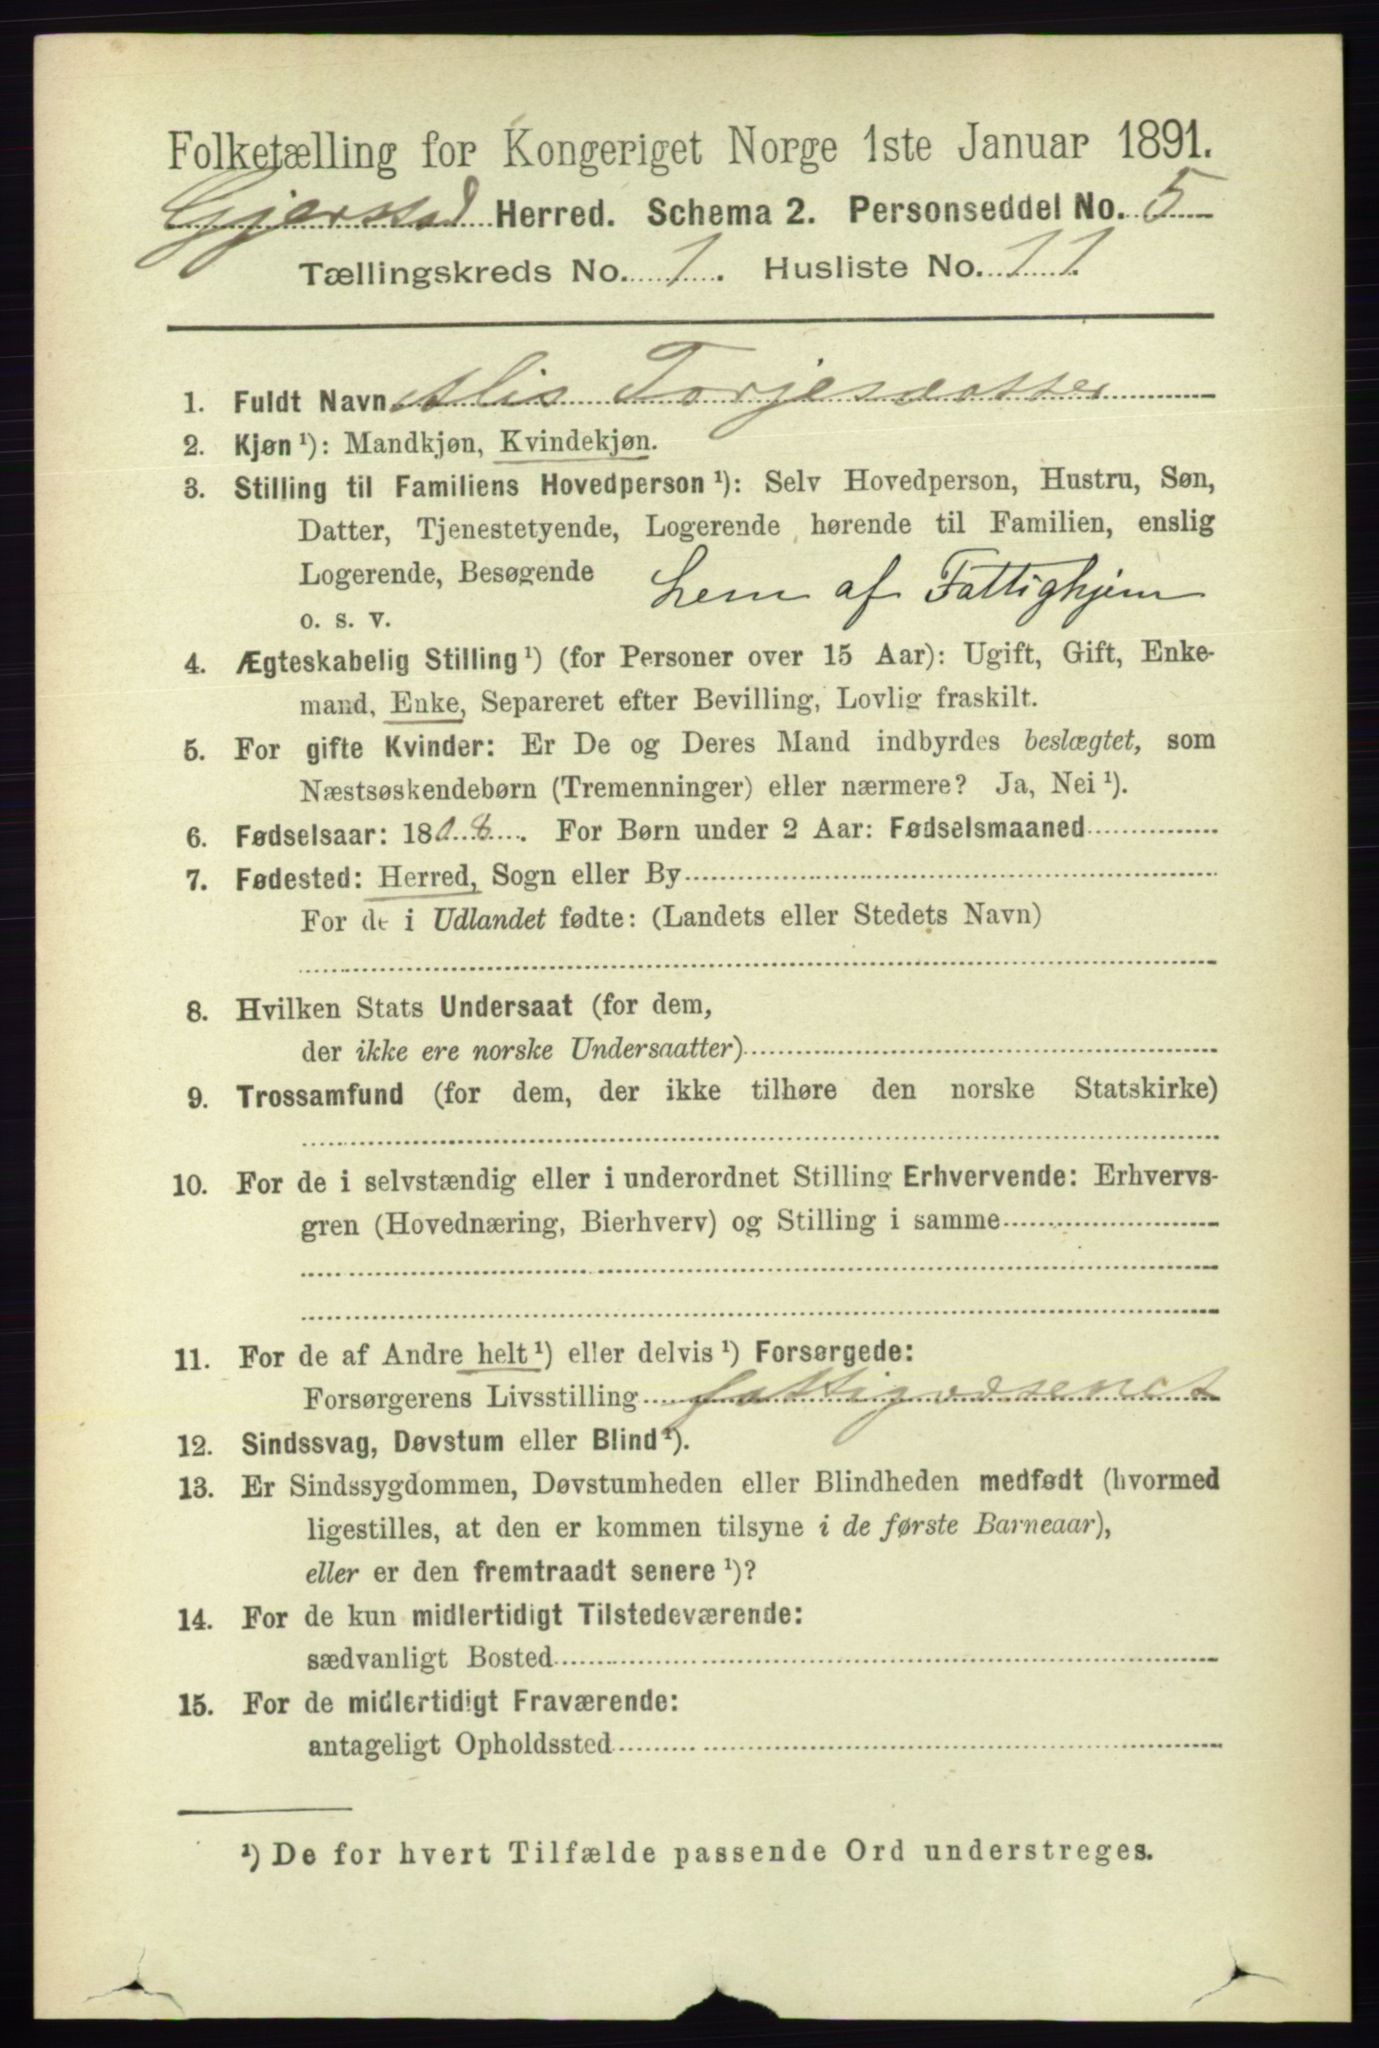 Folketælling for Kongeriget Norge 1ste Januar 1891.
Gjerstad Herred. Schema 2. Personseddel No. 5
Tællingskreds No. 1. Husliste No. 11.
1. Fuldt Navn Alis Torjesdatter
2. Kjøn ¹): Mandkjøn, Kvindekjøn.
3. Stilling til Familiens Hovedperson ¹): Selv Hovedperson, Hustru, Søn,
Datter, Tjenestetyende, Logerende hørende til Familien, enslig
Logerende, Besøgende Lem af Fattighjem
o. s. v.
4. Ægteskabelig Stilling ¹) (for Personer over 15 Aar): Ugift, Gift, Enke-
mand, Enke, Separeret efter Bevilling, Lovlig fraskilt.
5. For gifte Kvinder: Er De og Deres Mand indbyrdes beslægtet, som
Næstsøskendebørn (Tremenninger) eller nærmere? Ja, Nei ¹).
6. Fødselsaar: 1808. For Børn under 2 Aar: Fødselsmaaned
7. Fødested: Herred, Sogn eller By
For de i Udlandet fødte: (Landets eller Stedets Navn)
8. Hvilken Stats Undersaat (for dem,
der ikke ere norske Undersaatter)
9. Trossamfund (for dem, der ikke tilhøre den norske Statskirke)
10. For de i selvstændig eller i underordnet Stilling Erhvervende: Erhvervs-
gren (Hovednæring, Bierhverv) og Stilling i samme
11. For de af Andre helt ¹) eller delvis ¹) Forsørgede:
Forsørgerens Livsstilling fattigvæsenet
12. Sindssvag, Døvstum eller Blind ¹).
13. Er Sindssygdommen, Døvstumheden eller Blindheden medfødt (hvormed
ligestilles, at den er kommen tilsyne i de første Barneaar),
eller er den fremtraadt senere ¹)?
14. For de kun midlertidigt Tilstedeværende:
sædvanligt Bosted
15. For de midlertidigt Fraværende:
antageligt Opholdssted
¹) De for hvert Tilfælde passende Ord understreges.